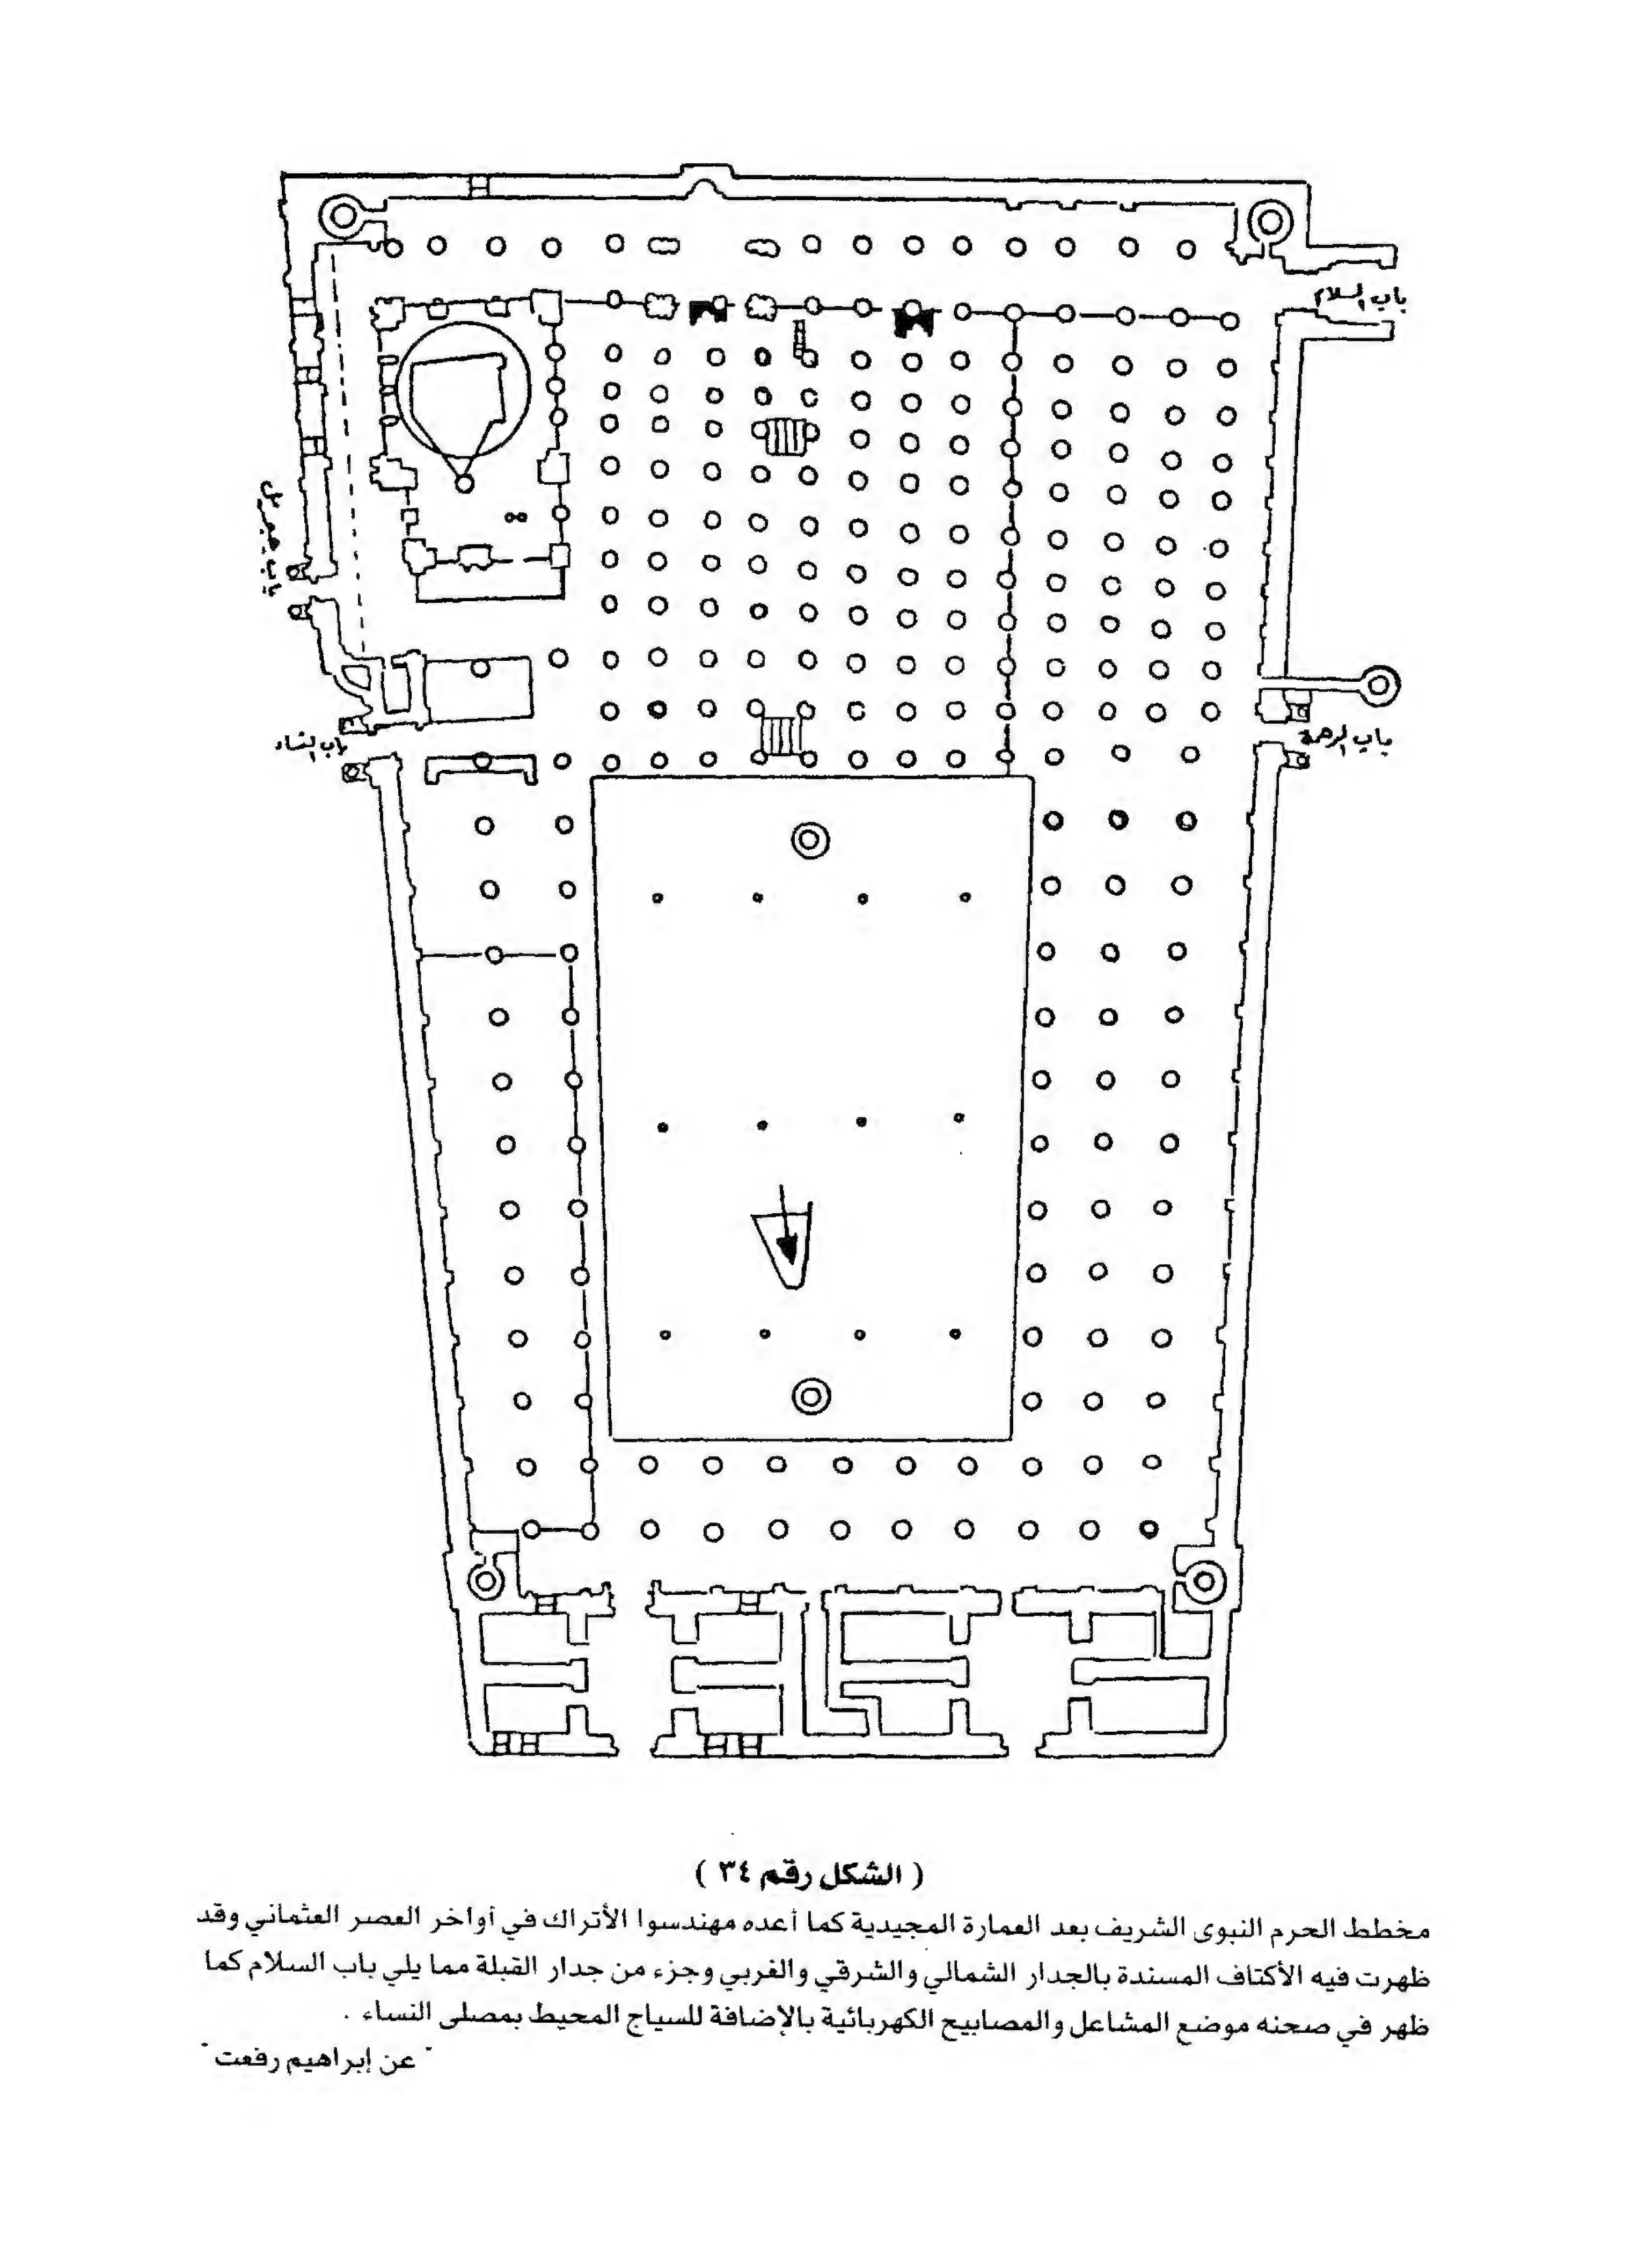 باب السلام
باب جبريل
باب النساء
باب الرحمة
( الشكل رقم ٣٤ )
مخطط الحرم النبوى الشريف بعد العمارة المجيدية كما أعده مهندسوا الأتراك في أواخر العصر العثماني وقد
ظهرت فيه الأكتاف المسندة بالجدار الشمالي والشرقي والغربي وجزء من جدار القبلة مما يلي باب السلام كما
ظهر في صحنه موضع المشاعل والمصابيح الكهربائية بالإضافة للسياج المحيط بمصلى النساء .
" عن إبراهيم رفعت "